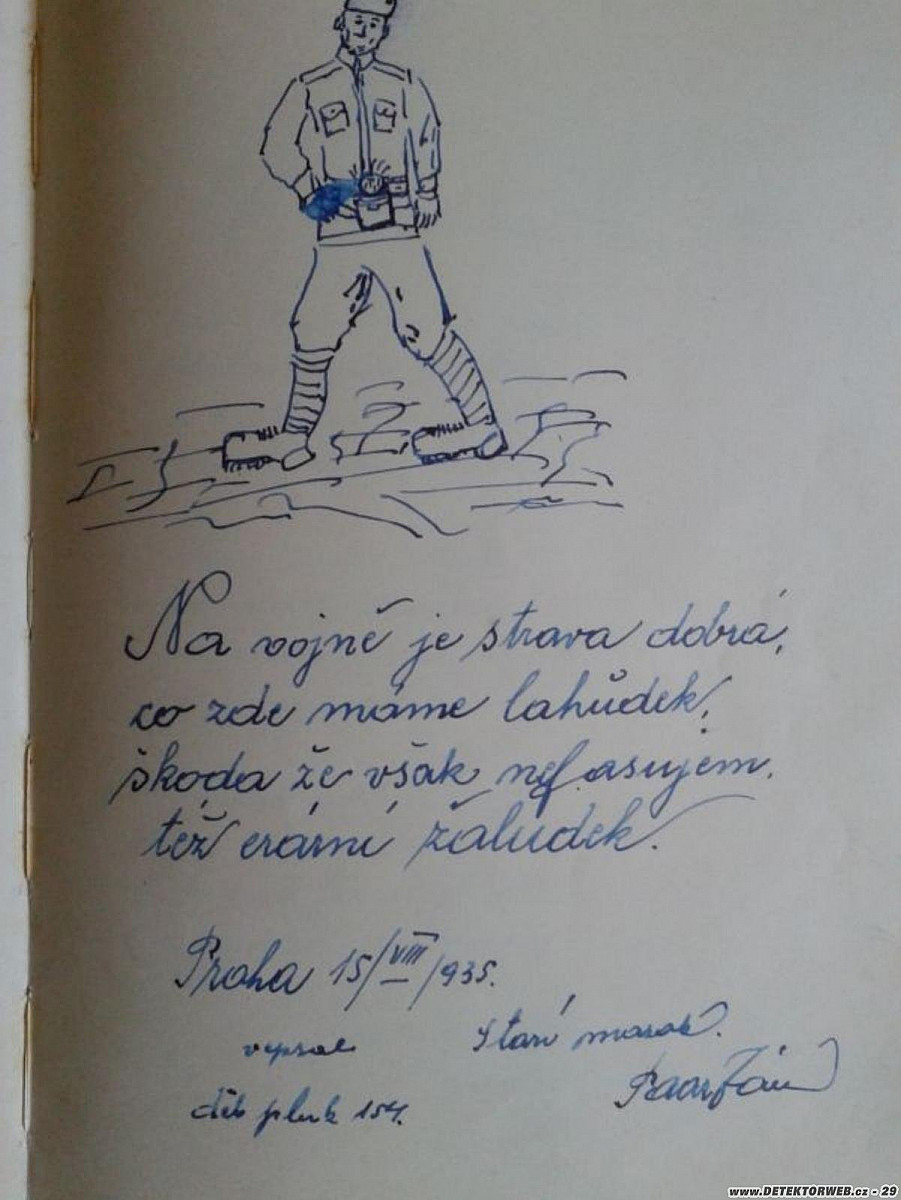 Na vojně je strava dobrá,
co zde máme lahůdek,
škoda že však nefasujem.
též erární žaludek.
Praha 15/VIII/935.
vepsal Starí mazák.
děl. pluk 154.
www.DETEKTORWEB.cz - 29